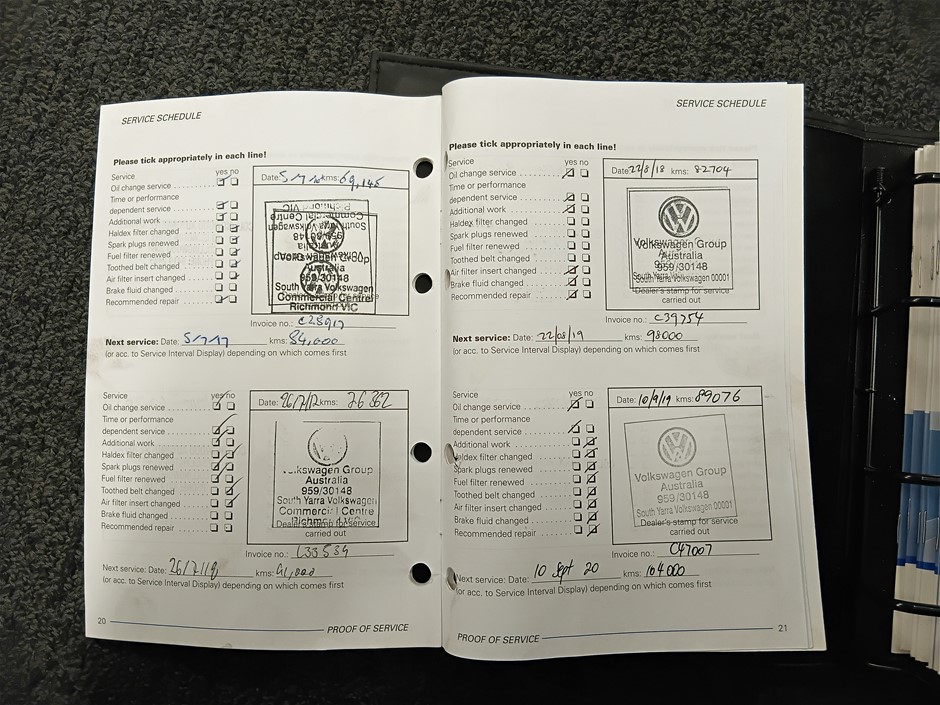 SERVICE SCHEDULE
Please tick appropriately in each line!
Service yes no
Oil change service
Time or performance
dependent service
Additional work
Haldex filter changed
Spark plugs renewed
Fuel filter renewed
Toothed belt changed
Air filter insert changed
Brake fluid changed
Recommended repair
Date: kms: 69,145
Australia
959/30148
South Yarra Volkswagen
Commercial Centre
Richmond VIC
Invoice no.:
Next service: Date: 5/7/17 kms: 84,000
(or acc. to Service Interval Display) depending on which comes first
Service yes no
Oil change service
Time or performance
dependent service
Additional work
Haldex filter changed
Spark plugs renewed
Fuel filter renewed
Toothed belt changed
Air filter insert changed
Brake fluid changed
Recommended repair
Date: 26/7/17 kms: 76 362
Volkswagen Group
Australia
959/30148
South Yarra Volkswagen
Commercial Centre
Richmond VIC
Dealer's stamp for service
carried out
Invoice no.: C33539
Next service: Date: 26/7/18 kms: 91,000
(or acc. to Service Interval Display) depending on which comes first
20 PROOF OF SERVICE
SERVICE SCHEDULE
Please tick appropriately in each line!
Service yes no
Oil change service
Time or performance
dependent service
Additional work
Haldex filter changed
Spark plugs renewed
Fuel filter renewed
Toothed belt changed
Air filter insert changed
Brake fluid changed
Recommended repair
Date: 22/8/18 kms: 82704
Volkswagen Group
Australia
959/30148
South Yarra Volkswagen 00001
Dealer's stamp for service
carried out
Invoice no.: C39754
Next service: Date: 22/08/19 kms: 98000
(or acc. to Service Interval Display) depending on which comes first
Service yes no
Oil change service
Time or performance
dependent service
Additional work
Haldex filter changed
Spark plugs renewed
Fuel filter renewed
Toothed belt changed
Air filter insert changed
Brake fluid changed
Recommended repair
Date: 10/9/19 kms: 89076
Volkswagen Group
Australia
959/30148
South Yarra Volkswagen 00001
Dealer's stamp for service
carried out
Invoice no.: C47007
Next service: Date: 10 Sept 20 kms: 104000
(or acc. to Service Interval Display) depending on which comes first
PROOF OF SERVICE 21